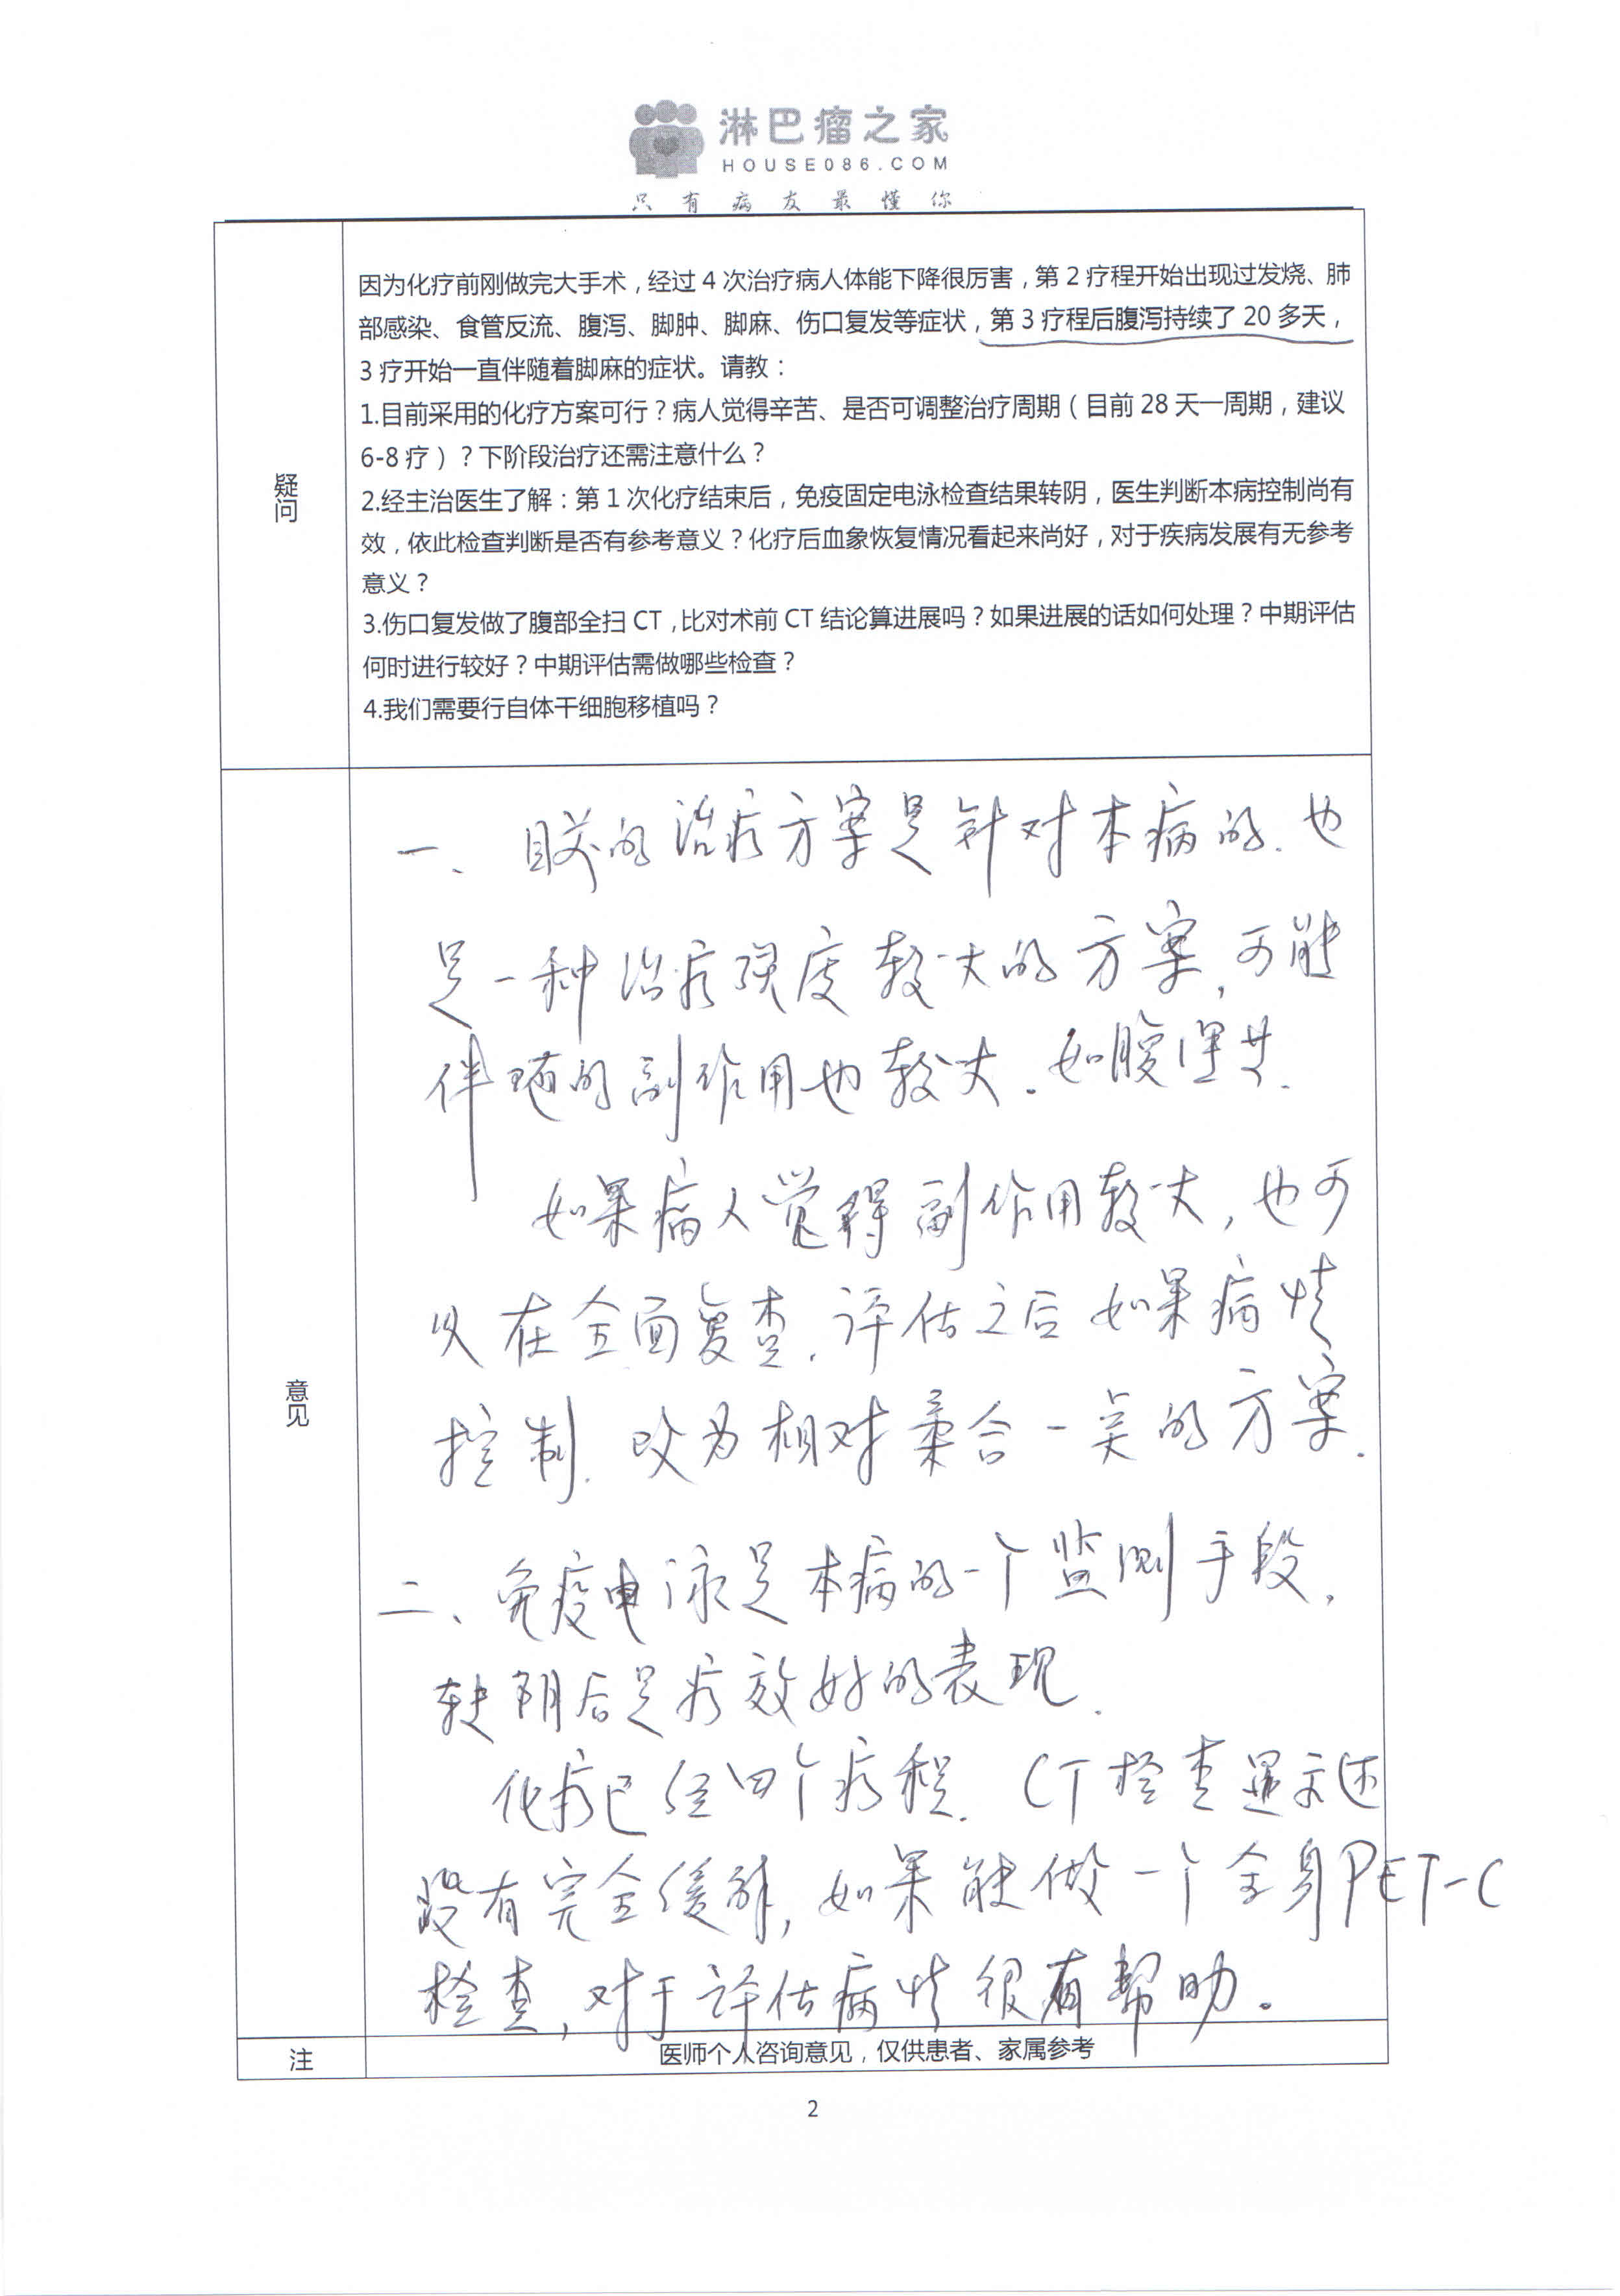 淋巴瘤之家
HOUSE086.COM
只有病友最懂你
因为化疗前刚做完大手术，经过4次治疗病人体能下降很厉害，第2疗程开始出现过发烧、肺
部感染、食管反流、腹泻、脚肿、脚麻、伤口复发等症状，第3疗程后腹泻持续了20多天，
3疗开始一直伴随着脚麻的症状。请教：
1.目前采用的化疗方案可行？病人觉得辛苦、是否可调整治疗周期（目前28天一周期，建议
6-8疗）？下阶段治疗还需注意什么？
疑问
2.经主治医生了解：第1次化疗结束后，免疫固定电泳检查结果转阴，医生判断本病控制尚有
效，依此检查判断是否有参考意义？化疗后血象恢复情况看起来尚好，对于疾病发展有无参考
意义？
3.伤口复发做了腹部全扫CT，比对术前CT结论算进展吗？如果进展的话如何处理？中期评估
何时进行较好？中期评估需做哪些检查？
4.我们需要行自体干细胞移植吗？
一、目前的治疗方案是针对本病的.也
是一种治疗强度较大的方案,可能
伴随的副作用也较大.如腹泻等.
如果病人觉得副作用较大,也可
以在全面复查.评估之后如果病情
控制.改为相对柔合一点的方案.
意见
二、免疫电泳是本病的一个监测手段,
转阴后是疗效好的表现.
化疗已经四个疗程.CT检查显示还
没有完全缓解,如果能做一个全身PET-C
检查,对于评估病情很有帮助。
注
医师个人咨询意见，仅供患者、家属参考
2